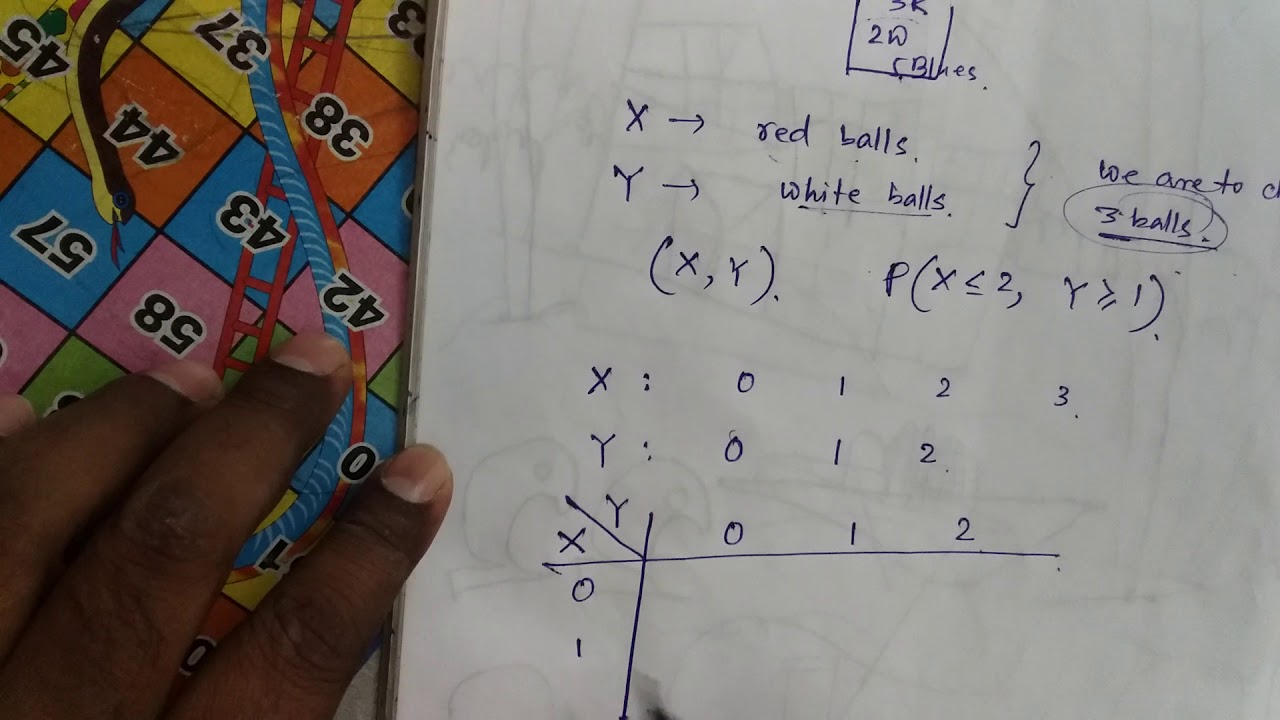 45
37
44
38
57
43
58
42
0
2W
5Blues.
X → red balls.
Y → white balls.
we are to
3 balls.
(X, Y). P(X ≤ 2, Y ⩾ 1).
X : 0 1 2 3.
Y : 0 1 2.
Y
X
0 1 2
0
1